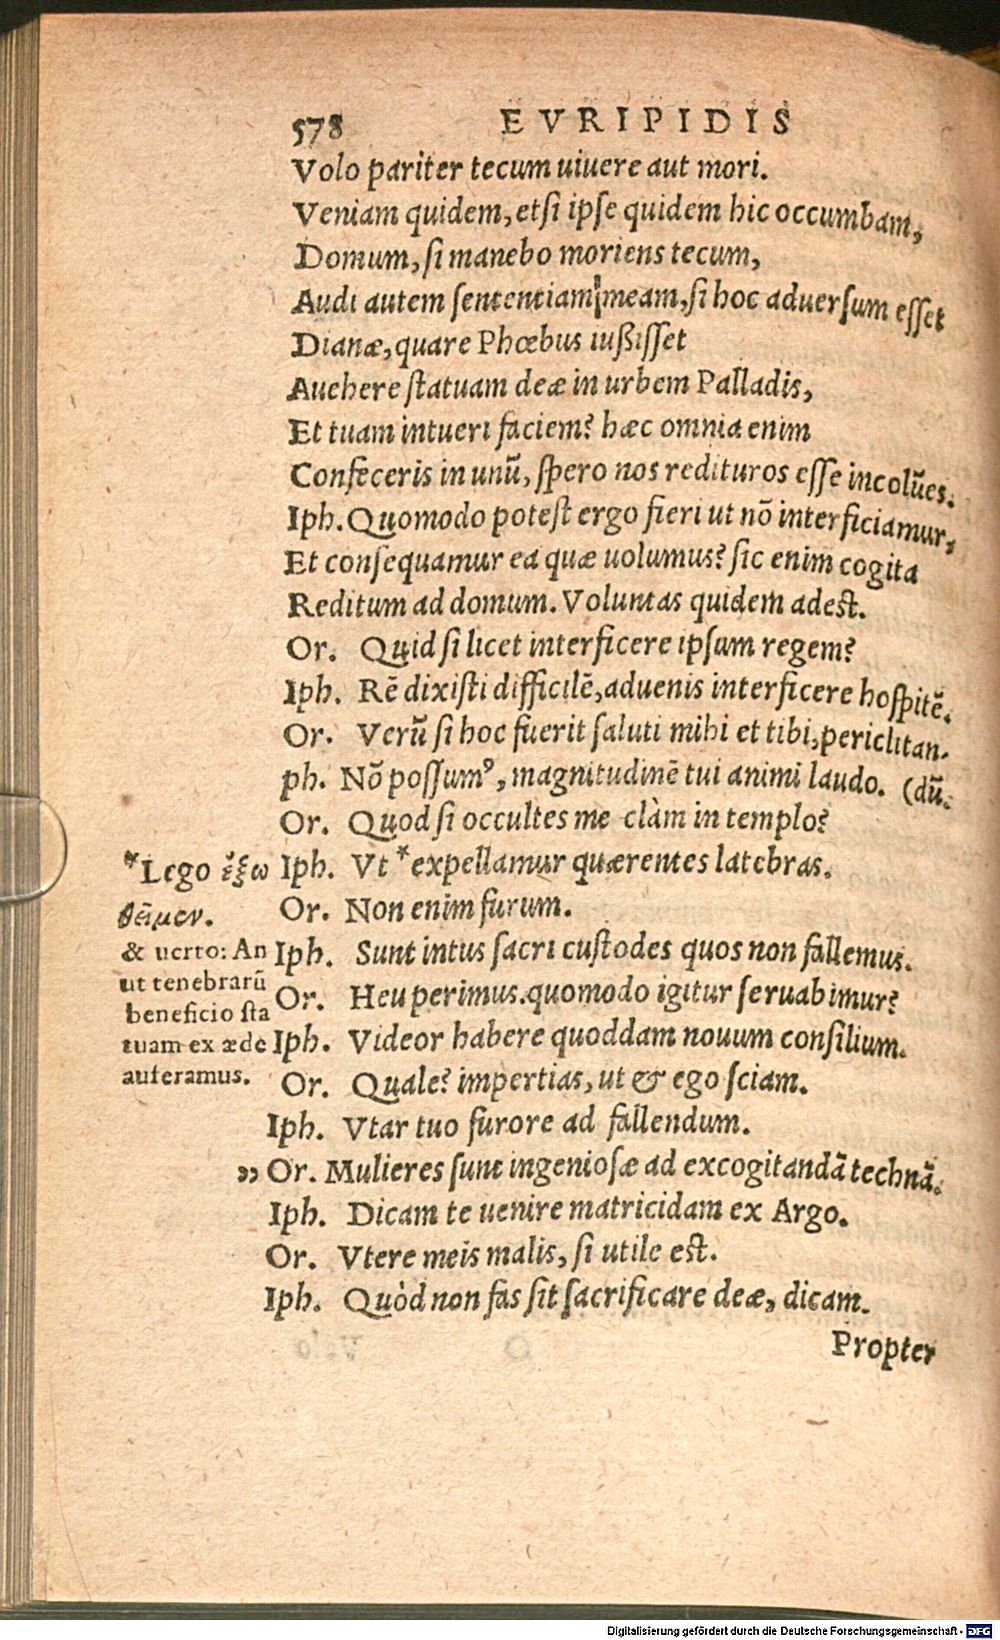 578 EVRIPIDIS
Volo pariter tecum uiuere aut mori.
Veniam quidem, etsi ipse quidem hic occumbam,
Domum, si manebo moriens tecum,
Audi autem sententiam meam, si hoc aduersum esset
Dianæ, quare Phœbus iußisset
Auehere statuam deæ in urbem Palladis,
Et tuam intueri faciem? hæc omnia enim
Confeceris in unũ, spero nos redituros esse incolũes.
Iph. Quomodo potest ergo fieri ut nõ interficiamur,
Et consequamur ea quæ uolumus? sic enim cogita
Reditum ad domum. Voluntas quidem adest.
Or. Quid si licet interficere ipsum regem?
Iph. Rẽ dixisti difficilẽ, aduenis interficere hospitẽ.
Or. Verũ si hoc fuerit saluti mihi et tibi, periclitan-
ph. Nõ possumꝰ, magnitudinẽ tui animi laudo. (dũ.
Or. Quod si occultes me clàm in templo?
Iph. Vt * expellamur quærentes latebras.
Or. Non enim furum.
Iph. Sunt intus sacri custodes quos non fallemus.
Or. Heu perimus. quomodo igitur seruabimur?
Iph. Videor habere quoddam nouum consilium.
Or. Quale? impertias, ut & ego sciam.
Iph. Vtar tuo furore ad fallendum.
„ Or. Mulieres sunt ingeniosæ ad excogitandã technã.
Iph. Dicam te uenire matricidam ex Argo.
Or. Vtere meis malis, si utile est.
Iph. Quòd non fas sit sacrificare deæ, dicam.
Propter
* Lego ἔξω
θεῖμεν.
& uerto: An
ut tenebrarũ
beneficio sta
tuam ex æde
auferamus.
Digitalisierung gefördert durch die Deutsche Forschungsgemeinschaft - DFG